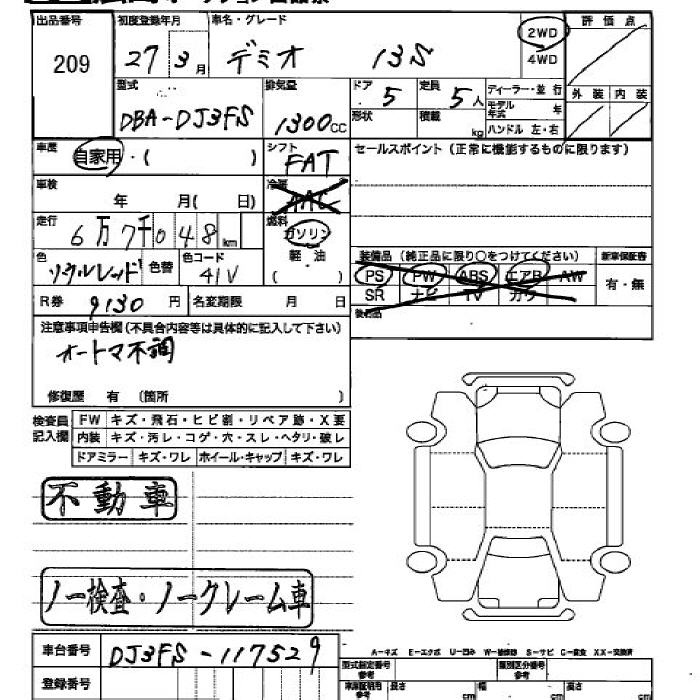 出品番号 初度登録年月 車名・グレード 評価点
209 27 3月 デミオ 13S 2WD
4WD
型式 排気量 ドア 定員 ディーラー・並行 外装 内装
DBA-DJ3FS 1300cc 5 5人 モデル年式 年
形状 積載 kg ハンドル 左・右
車歴 自家用・( ) シフト FAT セールスポイント(正常に機能するものに限ります)
車検 年 月( 日) 冷房 AAC
走行 6万7千048km 燃料 ガソリン
軽・油
( )
色 ソウルレッド 色替 色コード 41V
装備品(純正品に限り○をつけてください) 新車保証書
PS PW ABS エアB AW 有・無
SR ナビ TV カワ
R券 9130円 名変期限 月 日 後着品
注意事項申告欄(不具合内容等は具体的に記入して下さい)
オートマ不調
修復歴 有 (箇所 )
検査員記入欄 FW キズ・飛石・ヒビ割・リペア跡・X要
内装 キズ・汚レ・コゲ・穴・スレ・ヘタリ・破レ
ドアミラー キズ・ワレ ホイール・キャップ キズ・ワレ
不動車
ノー検査・ノークレーム車
A-キズ E-エクボ U-凹み W-補修跡 S-サビ C-腐食 XX-交換済
車台番号 DJ3FS-117529
型式指定番号 参考 類別区分番号 参考
登録番号 車庫証明用 参考 長さ cm 幅 cm 高さ cm